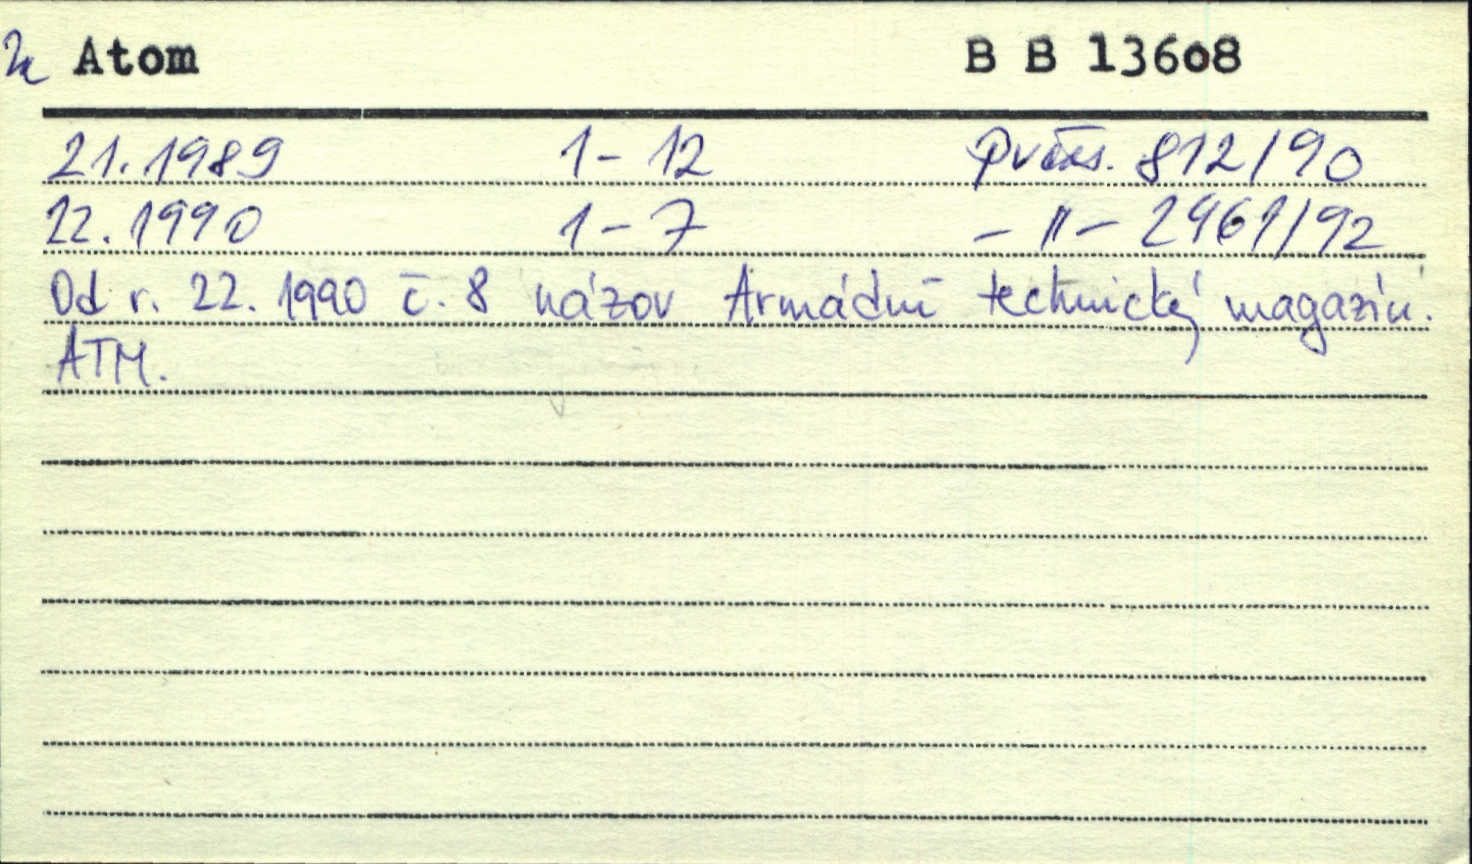 Atom B B 13608
21.1989 1-12 812/90
22.1990 1-7 -"- 2461/92
Od r. 22. 1990 č. 8 názov Armádní technický magazín.
ATM.